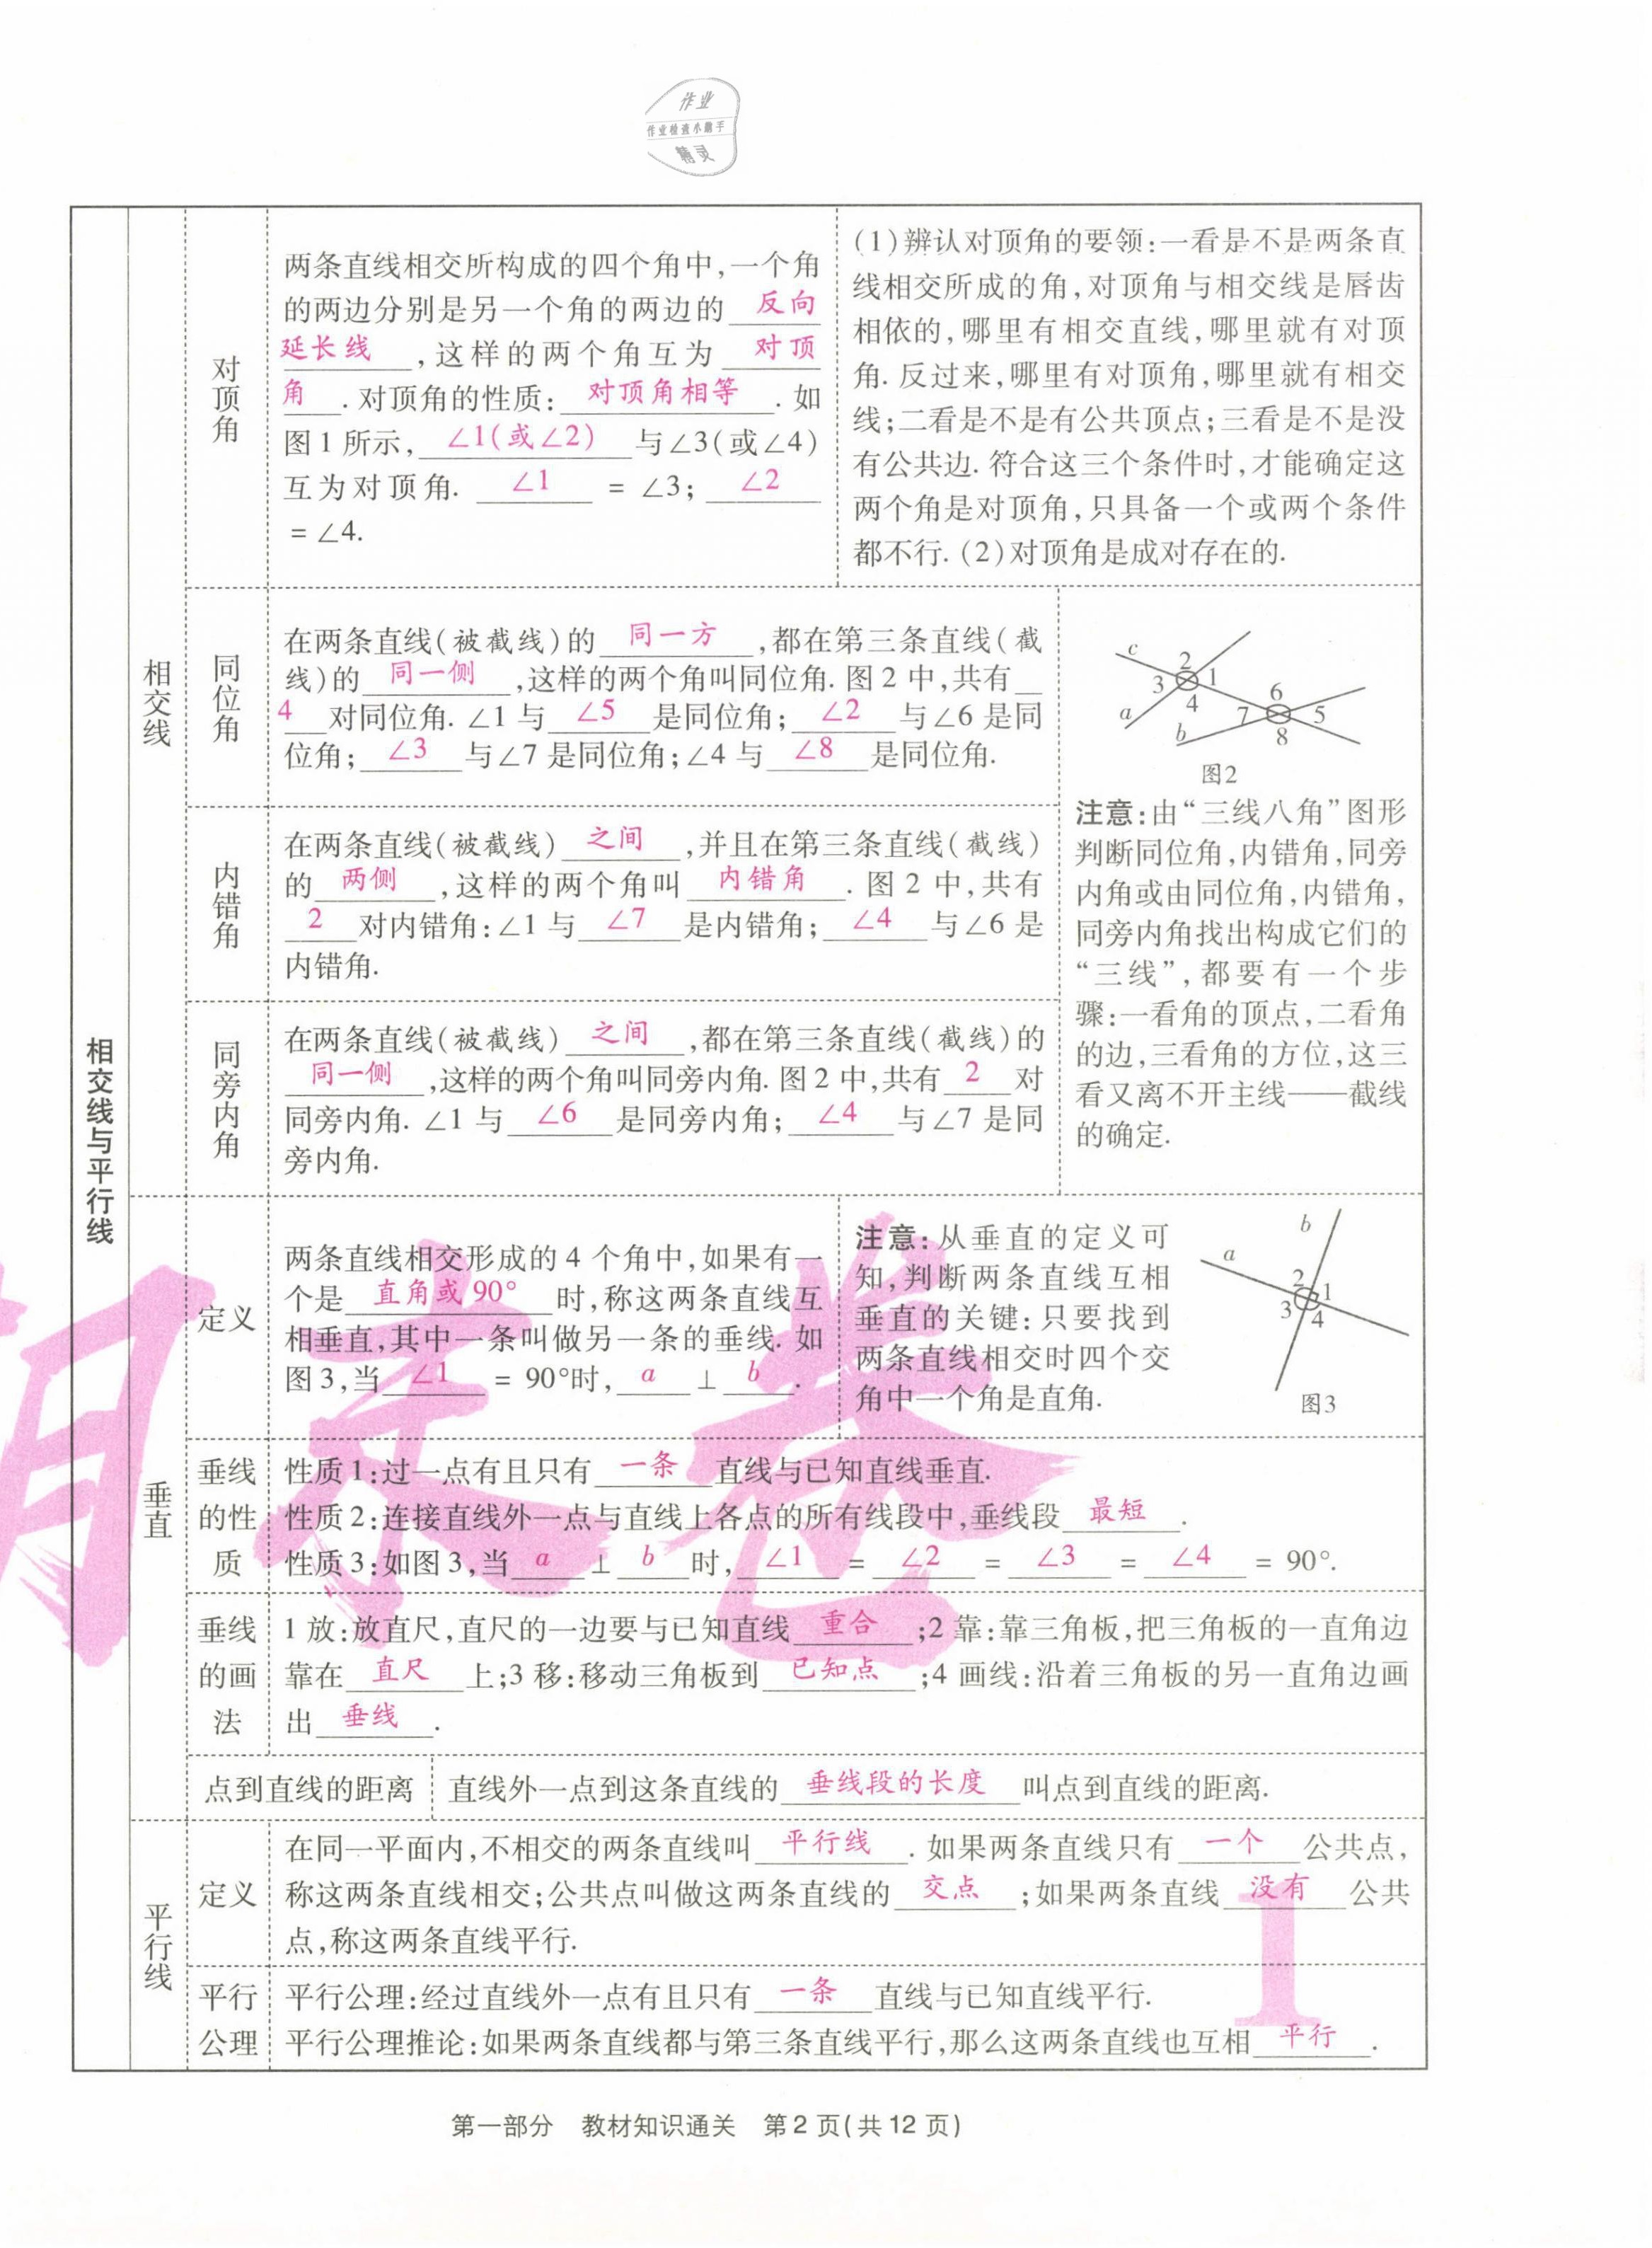 作业
作业检查小助手
精灵
相交线与平行线
相交线
对顶角
两条直线相交所构成的四个角中,一个角
的两边分别是另一个角的两边的 反向
延长线 ,这样的两个角互为 对顶
角 . 对顶角的性质: 对顶角相等 . 如
图1所示, ∠1(或∠2) 与∠3(或∠4)
互为对顶角. ∠1 = ∠3; ∠2
= ∠4.
(1)辨认对顶角的要领:一看是不是两条直
线相交所成的角,对顶角与相交线是唇齿
相依的,哪里有相交直线,哪里就有对顶
角. 反过来,哪里有对顶角,哪里就有相交
线;二看是不是有公共顶点;三看是不是没
有公共边. 符合这三个条件时,才能确定这
两个角是对顶角,只具备一个或两个条件
都不行. (2)对顶角是成对存在的.
同位角
在两条直线(被截线)的 同一方 ,都在第三条直线(截
线)的 同一侧 ,这样的两个角叫同位角. 图2中,共有
4 对同位角. ∠1与 ∠5 是同位角; ∠2 与∠6是同
位角; ∠3 与∠7是同位角;∠4与 ∠8 是同位角.
内错角
在两条直线(被截线) 之间 ,并且在第三条直线(截线)
的 两侧 ,这样的两个角叫 内错角 . 图2中,共有
2 对内错角:∠1与 ∠7 是内错角; ∠4 与∠6是
内错角.
同旁内角
在两条直线(被截线) 之间 ,都在第三条直线(截线)的
同一侧 ,这样的两个角叫同旁内角. 图2中,共有 2 对
同旁内角. ∠1与 ∠6 是同旁内角; ∠4 与∠7是同
旁内角.
c
2
3 1
4
a
6
7 5
b 8
图2
注意:由“三线八角”图形
判断同位角,内错角,同旁
内角或由同位角,内错角,
同旁内角找出构成它们的
“三线”,都要有一个步
骤:一看角的顶点,二看角
的边,三看角的方位,这三
看又离不开主线——截线
的确定.
垂直
定义
两条直线相交形成的4个角中,如果有一
个是 直角或90° 时,称这两条直线互
相垂直,其中一条叫做另一条的垂线. 如
图3,当 ∠1 = 90°时, a ⊥ b .
注意:从垂直的定义可
知,判断两条直线互相
垂直的关键:只要找到
两条直线相交时四个交
角中一个角是直角.
b
a
2 1
3 4
图3
垂线的性质
性质1:过一点有且只有 一条 直线与已知直线垂直.
性质2:连接直线外一点与直线上各点的所有线段中,垂线段 最短 .
性质3:如图3,当 a ⊥ b 时, ∠1 = ∠2 = ∠3 = ∠4 = 90°.
垂线的画法
1放:放直尺,直尺的一边要与已知直线 重合 ;2靠:靠三角板,把三角板的一直角边
靠在 直尺 上;3移:移动三角板到 已知点 ;4画线:沿着三角板的另一直角边画
出 垂线 .
点到直线的距离
直线外一点到这条直线的 垂线段的长度 叫点到直线的距离.
平行线
定义
在同一平面内,不相交的两条直线叫 平行线 . 如果两条直线只有 一个 公共点,
称这两条直线相交;公共点叫做这两条直线的 交点 ;如果两条直线 没有 公共
点,称这两条直线平行.
平行公理
平行公理:经过直线外一点有且只有 一条 直线与已知直线平行.
平行公理推论:如果两条直线都与第三条直线平行,那么这两条直线也互相 平行 .
期末卷
1
第一部分 教材知识通关 第2页(共12页)